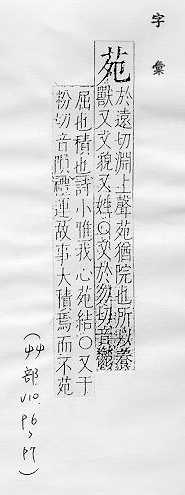 字彙
苑
於遠切淵上聲苑猶院也所以養
獸又文貌又姓〇又於勿切音鬱
屈也積也詩小雅我心苑結〇又于
粉切音隕禮運故事大積焉而不苑
(艸部 V10, P6, P7)